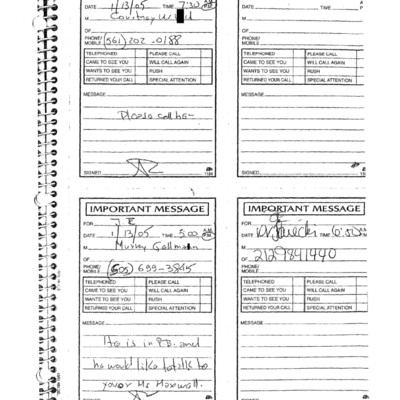 DATE 1/13/05 TIME 7:30
M Courtney
OF
PHONE/
MOBILE (561) 202-0188
TELEPHONED PLEASE CALL
CAME TO SEE YOU WILL CALL AGAIN
WANTS TO SEE YOU RUSH
RETURNED YOUR CALL SPECIAL ATTENTION
MESSAGE
Please call her
SIGNED
DATE TIME
M
OF
PHONE/
MOBILE
TELEPHONED PLEASE CALL
CAME TO SEE YOU WILL CALL AGAIN
WANTS TO SEE YOU RUSH
RETURNED YOUR CALL SPECIAL ATTENTION
MESSAGE
SIGNED
IMPORTANT MESSAGE
FOR J E
DATE 1/13/05 TIME 5:00
M Murray
OF
PHONE/
MOBILE (505) 699-3845
TELEPHONED PLEASE CALL
CAME TO SEE YOU WILL CALL AGAIN
WANTS TO SEE YOU RUSH
RETURNED YOUR CALL SPECIAL ATTENTION
MESSAGE
He is in P.B. and
he would like to talk to
you or Ms Maxwell.
SIGNED
IMPORTANT MESSAGE
FOR
DATE TIME
M
OF 2129841440
PHONE/
MOBILE
TELEPHONED PLEASE CALL
CAME TO SEE YOU WILL CALL AGAIN
WANTS TO SEE YOU RUSH
RETURNED YOUR CALL SPECIAL ATTENTION
MESSAGE
SIGNED